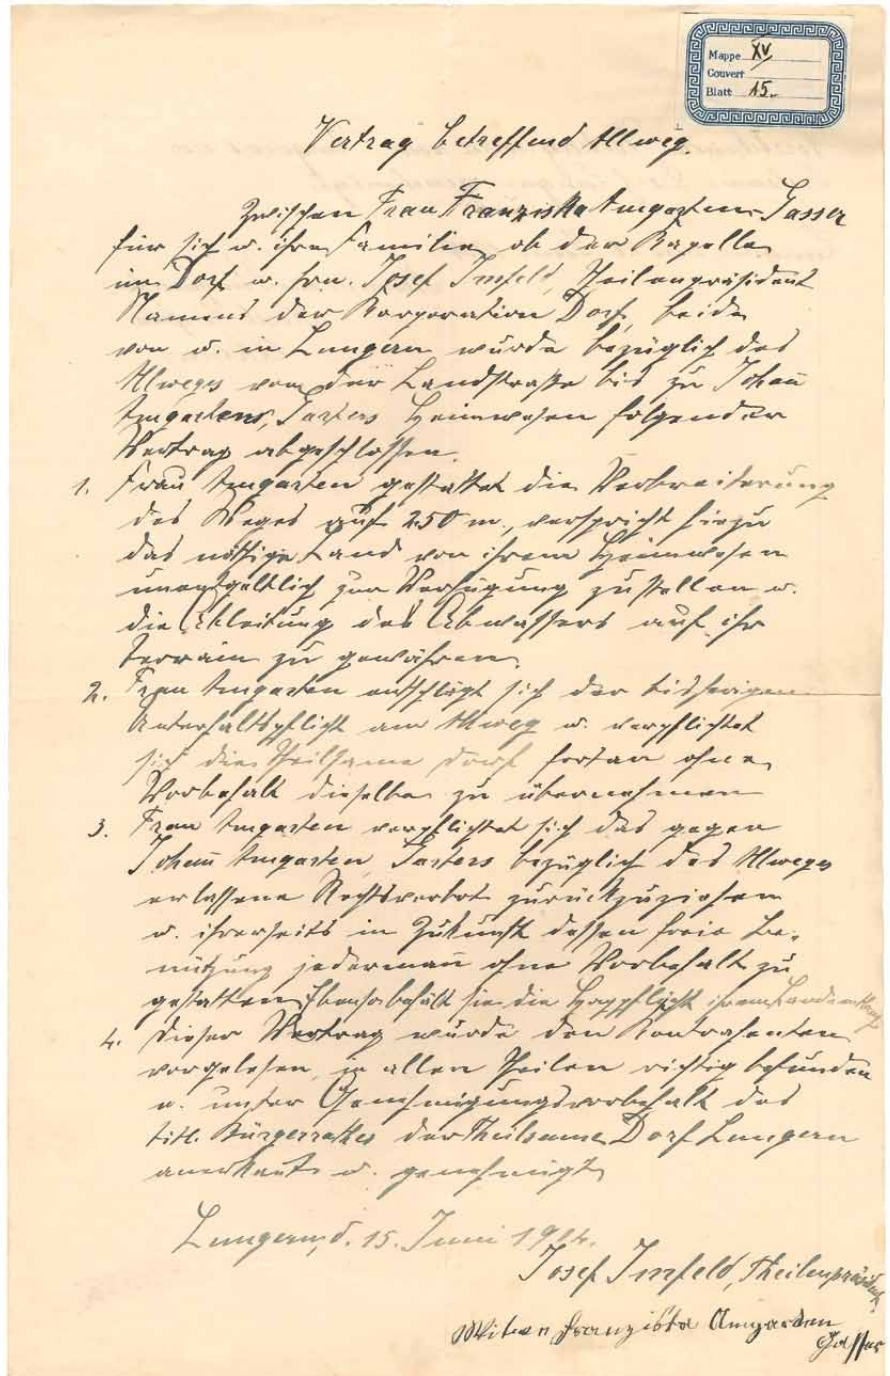 Mappe XV
Couvert
Blatt 15.
Vertrag betreffend Allweg.
Zwischen Frau Franziska Amgarten-Gasser
für sich u. ihre Familie, ob der Kapelle
im Dorf u. Hrn. Josef Imfeld, Theilenpräsident
Namens der Korporation Dorf, beide
von u. in Lungern wurde bezüglich des
Allweges von der Landstraße bis zu Johañ
Amgartens, Heimwesen folgender
Vertrag abgeschlossen.
1. Frau Amgarten gestattet die Verbreiterung
des Weges auf 2.50 m., verspricht hiezu
das nöthige Land von ihrem Heimwesen
unentgeltlich zur Verfügung zu stellen u.
die Ableitung des Abwassers auf ihr
Terrain zu gewähren.
2. Frau Amgarten entschlägt sich der bisherigen
Unterhaltspflicht am Allweg u. verpflichtet
sich die Theilsame Dorf fortan ohne
Vorbehalt dieselbe zu übernehmen
3. Frau Amgarten verpflichtet sich das gegen
Johañ Amgarten bezüglich des Allweges
erlassene Rechtsverbot zurückzuziehen
u. ihrerseits in Zukunft dessen freie Be-
nützung jedermañ ohne Vorbehalt zu
gestatten, Ebenso behält sie die Hagpflicht ihrem Lande entlang
4. Dieser Vertrag wurde den Kontrahenten
vorgelesen, in allen Theilen richtig befunden
u. unter Genehmigungsvorbehalt des
titl. Bürgerrathes der Theilsame Dorf Lungern
anerkañt u. genehmigt
Lungern, d. 15. Juni 1914.
Josef Imfeld, Theilenpräsident
Witwe Franziska Amgarden
Gasser